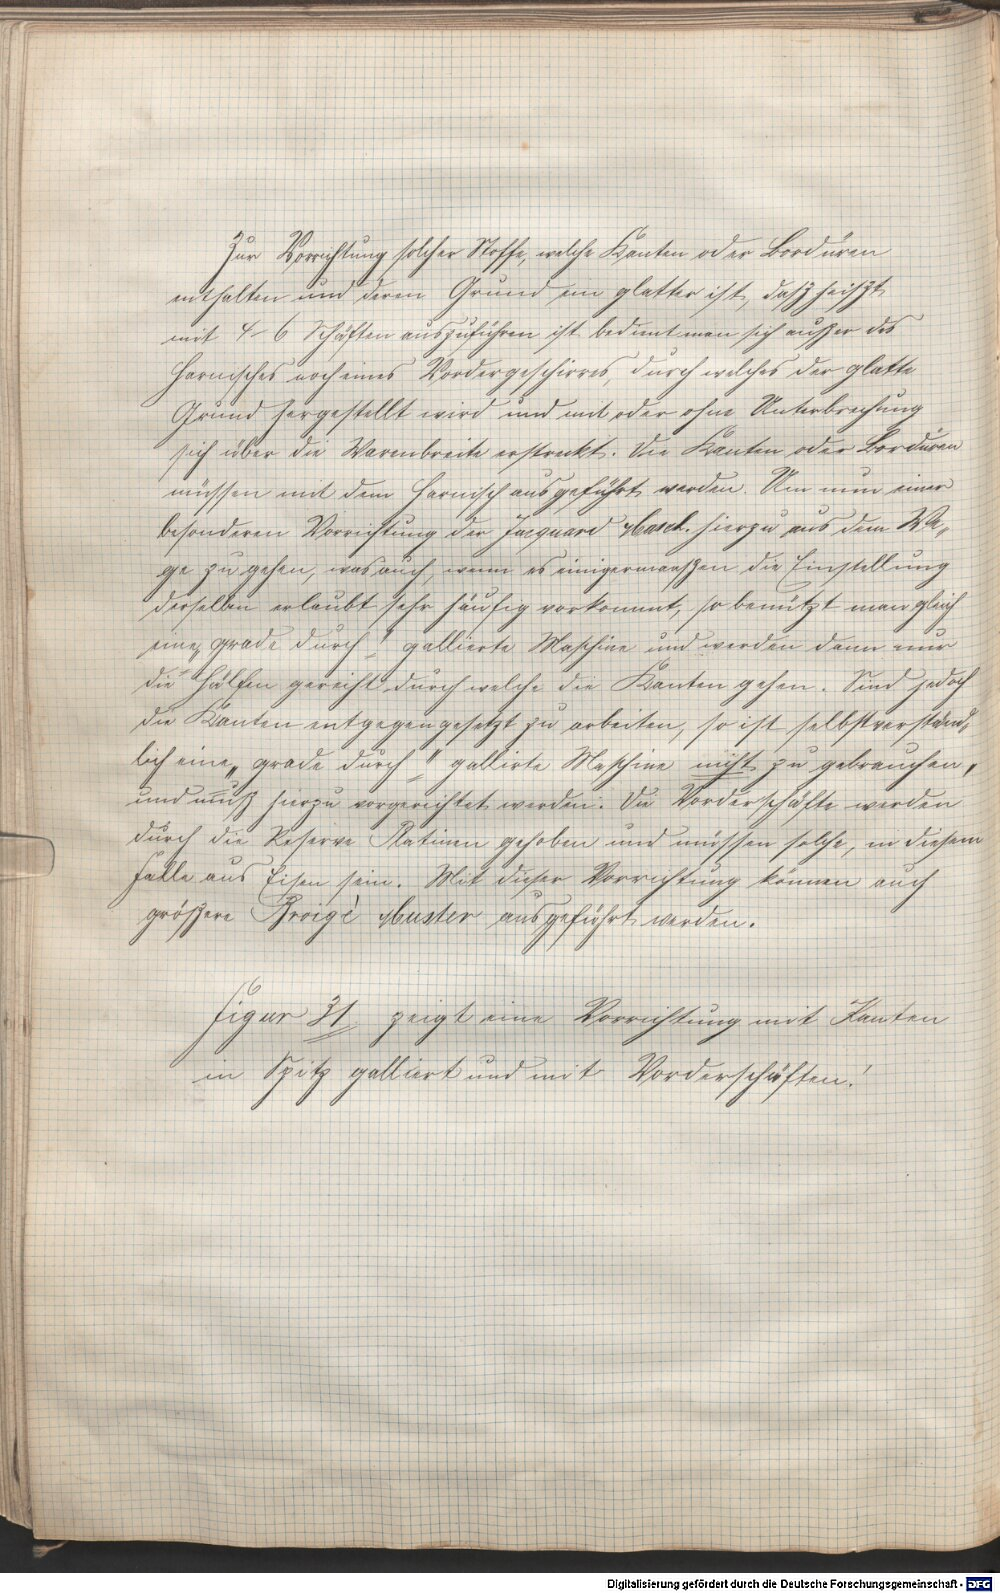 Zur Vorrichtung solcher Stoffe, welche Kanten oder Bordüren
enthalten und deren Grund ein glatter ist, daß heißt
mit 4-6 Schäften auszuführen ist bedient man sich außer des
Harnisches noch eines Vordergeschirres, durch welches der glatte
Grund hergestellt wird und mit oder ohne Unterbrechung
sich über die Warenbreite erstreckt. Die Kanten oder Bordüren
müssen mit dem Harnisch ausgeführt werden. Um nun einer
besonderen Vorrichtung der Jacquard Masch. hierzu aus dem We„
ge zu gehen, was auch, wenn es einigermaaßen die Einstellung
derselben erlaubt sehr häufig vorkommt, so benützt man gleich
eine „grade durch" gallierte Maschine und werden dann nur
die Hälfen gereiht durch welche die Kanten gehen. Sind jedoch
die Kanten entgegengesetzt zu arbeiten, so ist selbstverständ„
lich eine „grade durch" gallirte Maschine nicht zu gebrauchen,
und muß hierzu vorgerichtet werden. Die Vorderschäfte werden
durch die Reserve Platinen gehoben und müssen solche, in diesem
Falle aus Eisen sein. Mit dieser Vorrichtung können auch
größere Broigè Muster ausgeführt werden.
Figur 31 zeigt eine Vorrichtung mit Kanten
in Spitz galliert und mit Vorderschäften!
Digitalisierung gefördert durch die Deutsche Forschungsgemeinschaft - DFG